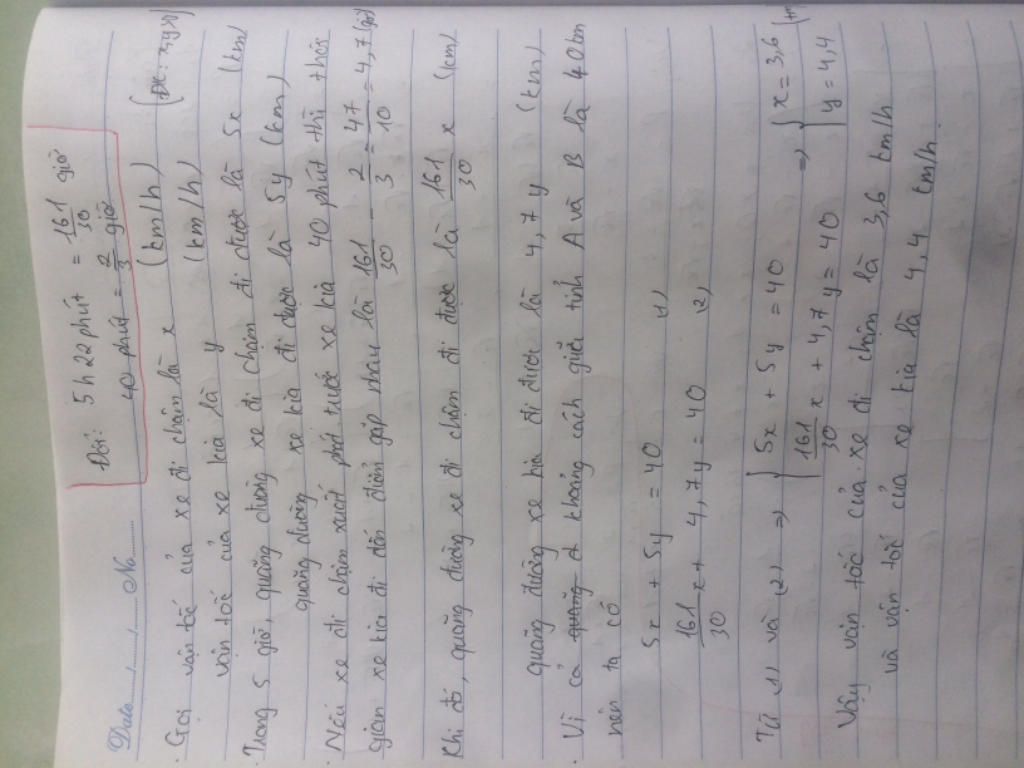 Date ...../...../..... No...........
Đổi: 5h22 phút = 161/30 giờ
40 phút = 2/3 giờ
Gọi vận tốc của xe đi chậm là x (km/h) (ĐK: x,y>0)
vận tốc của xe kia là y (km/h)
Trong 5 giờ, quãng đường xe đi chậm đi được là 5x (km)
quãng đường xe kia đi được là 5y (km)
Nếu xe đi chậm xuất phát trước xe kia 40 phút thì thời
gian xe kia đi đến điểm gặp nhau là 161/30 - 2/3 = 47/10 = 4,7 (giờ)
Khi đó, quãng đường xe đi chậm đi được là 161/30 x (km)
quãng đường xe kia đi được là 4,7y (km)
Vì cả quãng 2 khoảng cách giữa tỉnh A và B là 40km
nên ta có
5x + 5y = 40 (1)
161/30 x + 4,7y = 40 (2)
Từ (1) và (2) => { 5x + 5y = 40 => { x = 3,6 (tm)
161/30 x + 4,7y = 40 y = 4,4
Vậy vận tốc của xe đi chậm là 3,6 km/h
và vận tốc của xe kia là 4,4 km/h